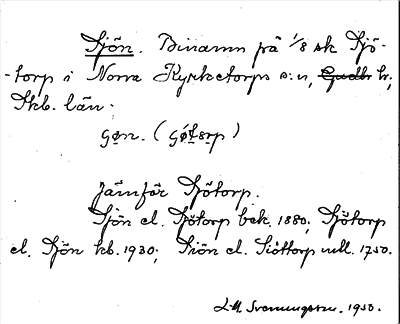 Sjön. Binamn på 1/8 sk Sjö-
-torp i Norra Kyrketorps s:n, Gudh h,
Skb. län.
Jämför Sjötorp.
Sjön el. Sjötorp bek. 1880; Sjötorp
el. Sjön kb. 1930; Siön el. Siöttorp 1750.
L-M. Svenungsson. 1950.